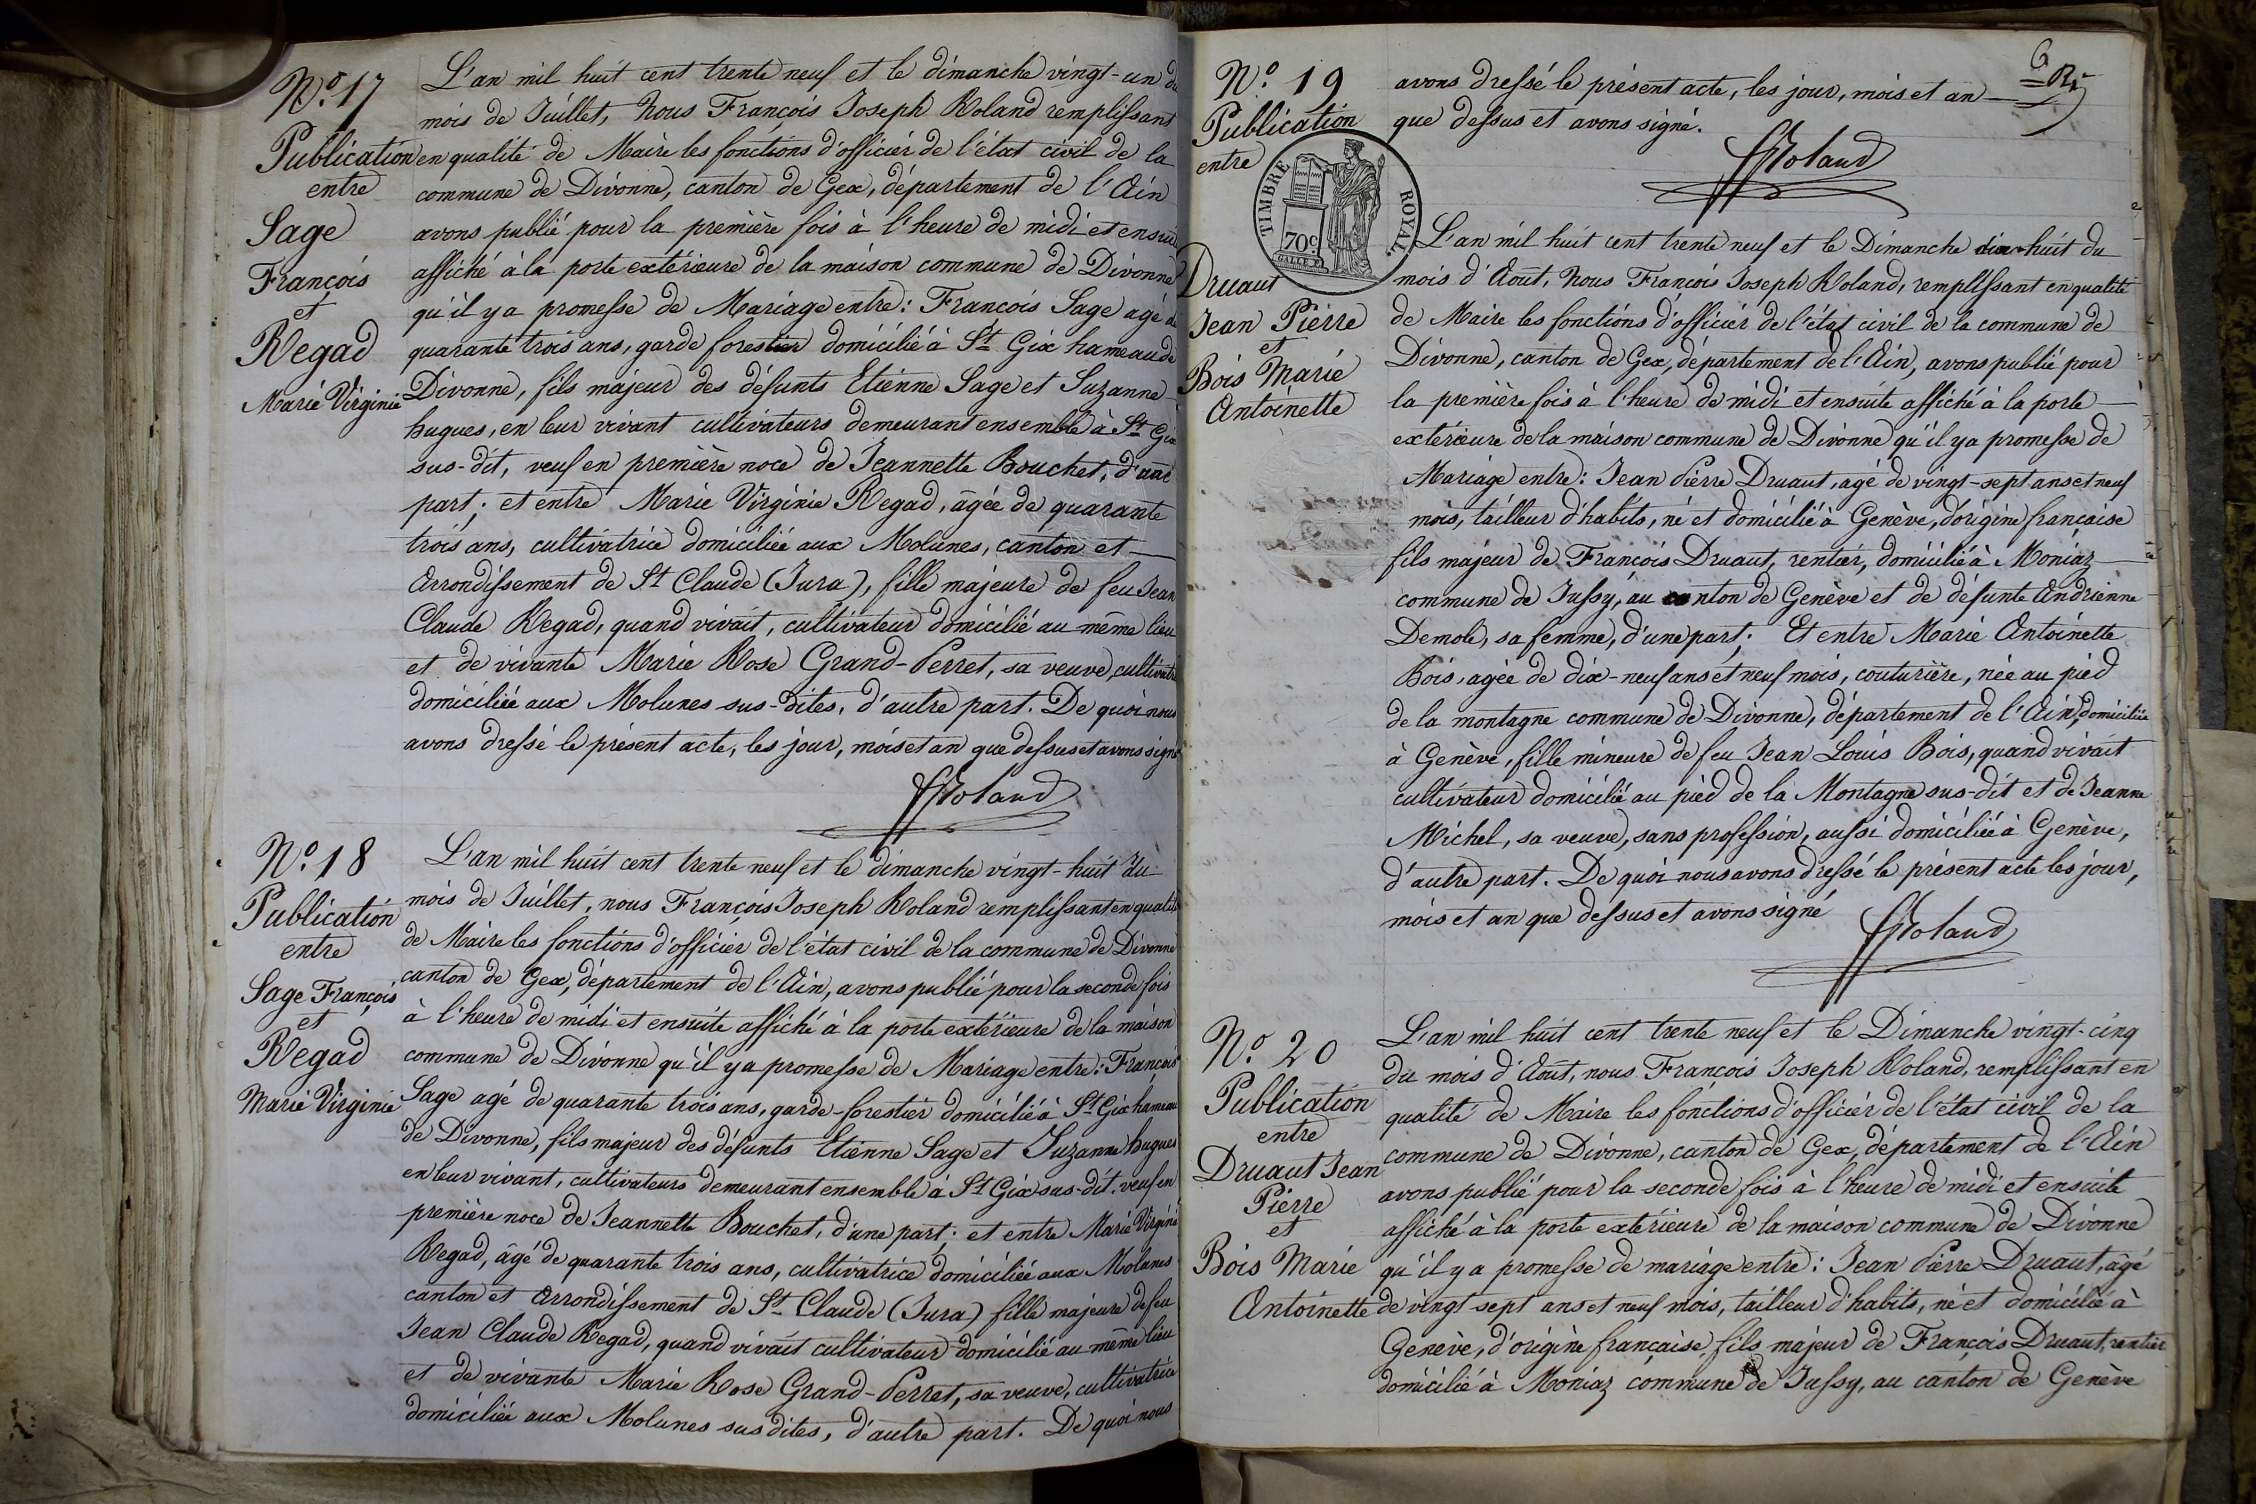 N.º 17
Publication
entre
Sage
François
et
Regad
Marie Virginie
L'an mil huit cent trente neuf et le dimanche vingt-un du
mois de Juillet, Nous François Joseph Roland remplissant
en qualité de Maire les fonctions d'officier de l'état civil de la
commune de Divonne, canton de Gex, département de l'Ain
avons publié pour la première fois à l'heure de midi et ensuite
affiché à la porte extérieure de la maison commune de Divonne
qu'il y a promesse de Mariage entre: François Sage agé de
quarante trois ans, garde forestier domicilié à St Gix hameau de
Divonne, fils majeur des défunts Etienne Sage et Suzanne
hugues, en leur vivant cultivateurs demeurant ensemble à St Gix
sus-dit, veuf en première noce de Jeannette Bouchet, d'une
part; et entre Marie Virginie Regad, agée de quarante
trois ans, cultivatrice domiciliée aux Molunes, canton et
Arrondissement de St Claude (Jura), fille majeure de feu Jean
Claude Regad, quand vivait, cultivateur domicilié au même lieu
et de vivante Marie Rose Grand-Perret, sa veuve, cultivatrice
domiciliée aux Molunes sus-dites, d'autre part. De quoi nous
avons dressé le présent acte, les jour, mois et an que dessus et avons signé
FJRoland
N.º 18
Publication
entre
Sage François
et
Regad
Marie Virginie
L'an mil huit cent trente neuf et le dimanche vingt-huit du
mois de Juillet, nous François Joseph Roland remplissant en qualité
de Maire les fonctions d'officier de l'état civil de la commune de Divonne
canton de Gex, département de l'Ain, avons publié pour la seconde fois
à l'heure de midi et ensuite affiché à la porte extérieure de la maison
commune de Divonne qu'il y a promesse de Mariage entre: François
Sage agé de quarante trois ans, garde-forestier domicilié à St Gix hameau
de Divonne, fils majeur des défunts Etienne Sage et Suzanne hugues
en leur vivant, cultivateurs demeurant ensemble à St Gix sus-dit, veuf en
première noce de Jeannette Bouchet, d'une part; et entre Marie Virginie
Regad, âgé de quarante trois ans, cultivatrice domiciliée aux Molunes
canton et Arrondissement de St Claude (Jura) fille majeure de feu
Jean Claude Regad, quand vivait cultivateur domicilié au même lieu
et de vivante Marie Rose Grand-Perret, sa veuve, cultivatrice
domiciliée aux Molunes sus dites, d'autre part. De quoi nous
6
avons dressé le présent acte, les jour, mois et an
que dessus et avons signé.
FJRoland
TIMBRE ROYAL
70c
N.º 19
Publication
entre
Druaut
Jean Pierre
et
Bois Marie
Antoinette
L'an mil huit cent trente neuf et le Dimanche dix-huit du
mois d'Aout, Nous François Joseph Roland, remplissant en qualité
de Maire les fonctions d'officier de l'état civil de la commune de
Divonne, canton de Gex, département de l'Ain, avons publié pour
la première fois à l'heure de midi et ensuite affiché à la porte
extérieure de la maison commune de Divonne qu'il y a promesse de
Mariage entre: Jean Pierre Druaut, agé de vingt-sept ans et neuf
mois, tailleur d'habits, né et domicilié à Genève, d'origine francaise
fils majeur de François Druaut, rentier, domicilié à Moniaz
commune de Jussy, au canton de Genève et de défunte Andrienne
Demole, sa femme, d'une part; Et entre Marie Antoinette
Bois, agée de dix-neuf ans et neuf mois, couturière, née au pied
de la montagne commune de Divonne, département de l'Ain, domiciliée
à Genève, fille mineure de feu Jean Louis Bois, quand vivait
cultivateur domicilié au pied de la Montagne sus-dit et de Jeanne
Michel, sa veuve, sans profession, aussi domiciliée à Genève,
d'autre part. De quoi nous avons dressé le présent acte les jour,
mois et an que dessus et avons signé
FJRoland
N.º 20
Publication
entre
Druaut Jean
Pierre
et
Bois Marie
Antoinette
L'an mil huit cent trente neuf et le Dimanche vingt-cinq
du mois d'Aout, nous François Joseph Roland, remplissant en
qualité de Maire les fonctions d'officier de l'état civil de la
commune de Divonne, canton de Gex, département de l'Ain
avons publié pour la seconde fois à l'heure de midi et ensuite
affiché à la porte extérieure de la maison commune de Divonne
qu'il y a promesse de mariage entre: Jean Pierre Druaut, âgé
de vingt sept ans et neuf mois, tailleur d'habits, né et domicilié à
Genève, d'origine française, fils majeur de François Druaut, rentier
domicilié à Moniaz commune de Jussy, au canton de Genève